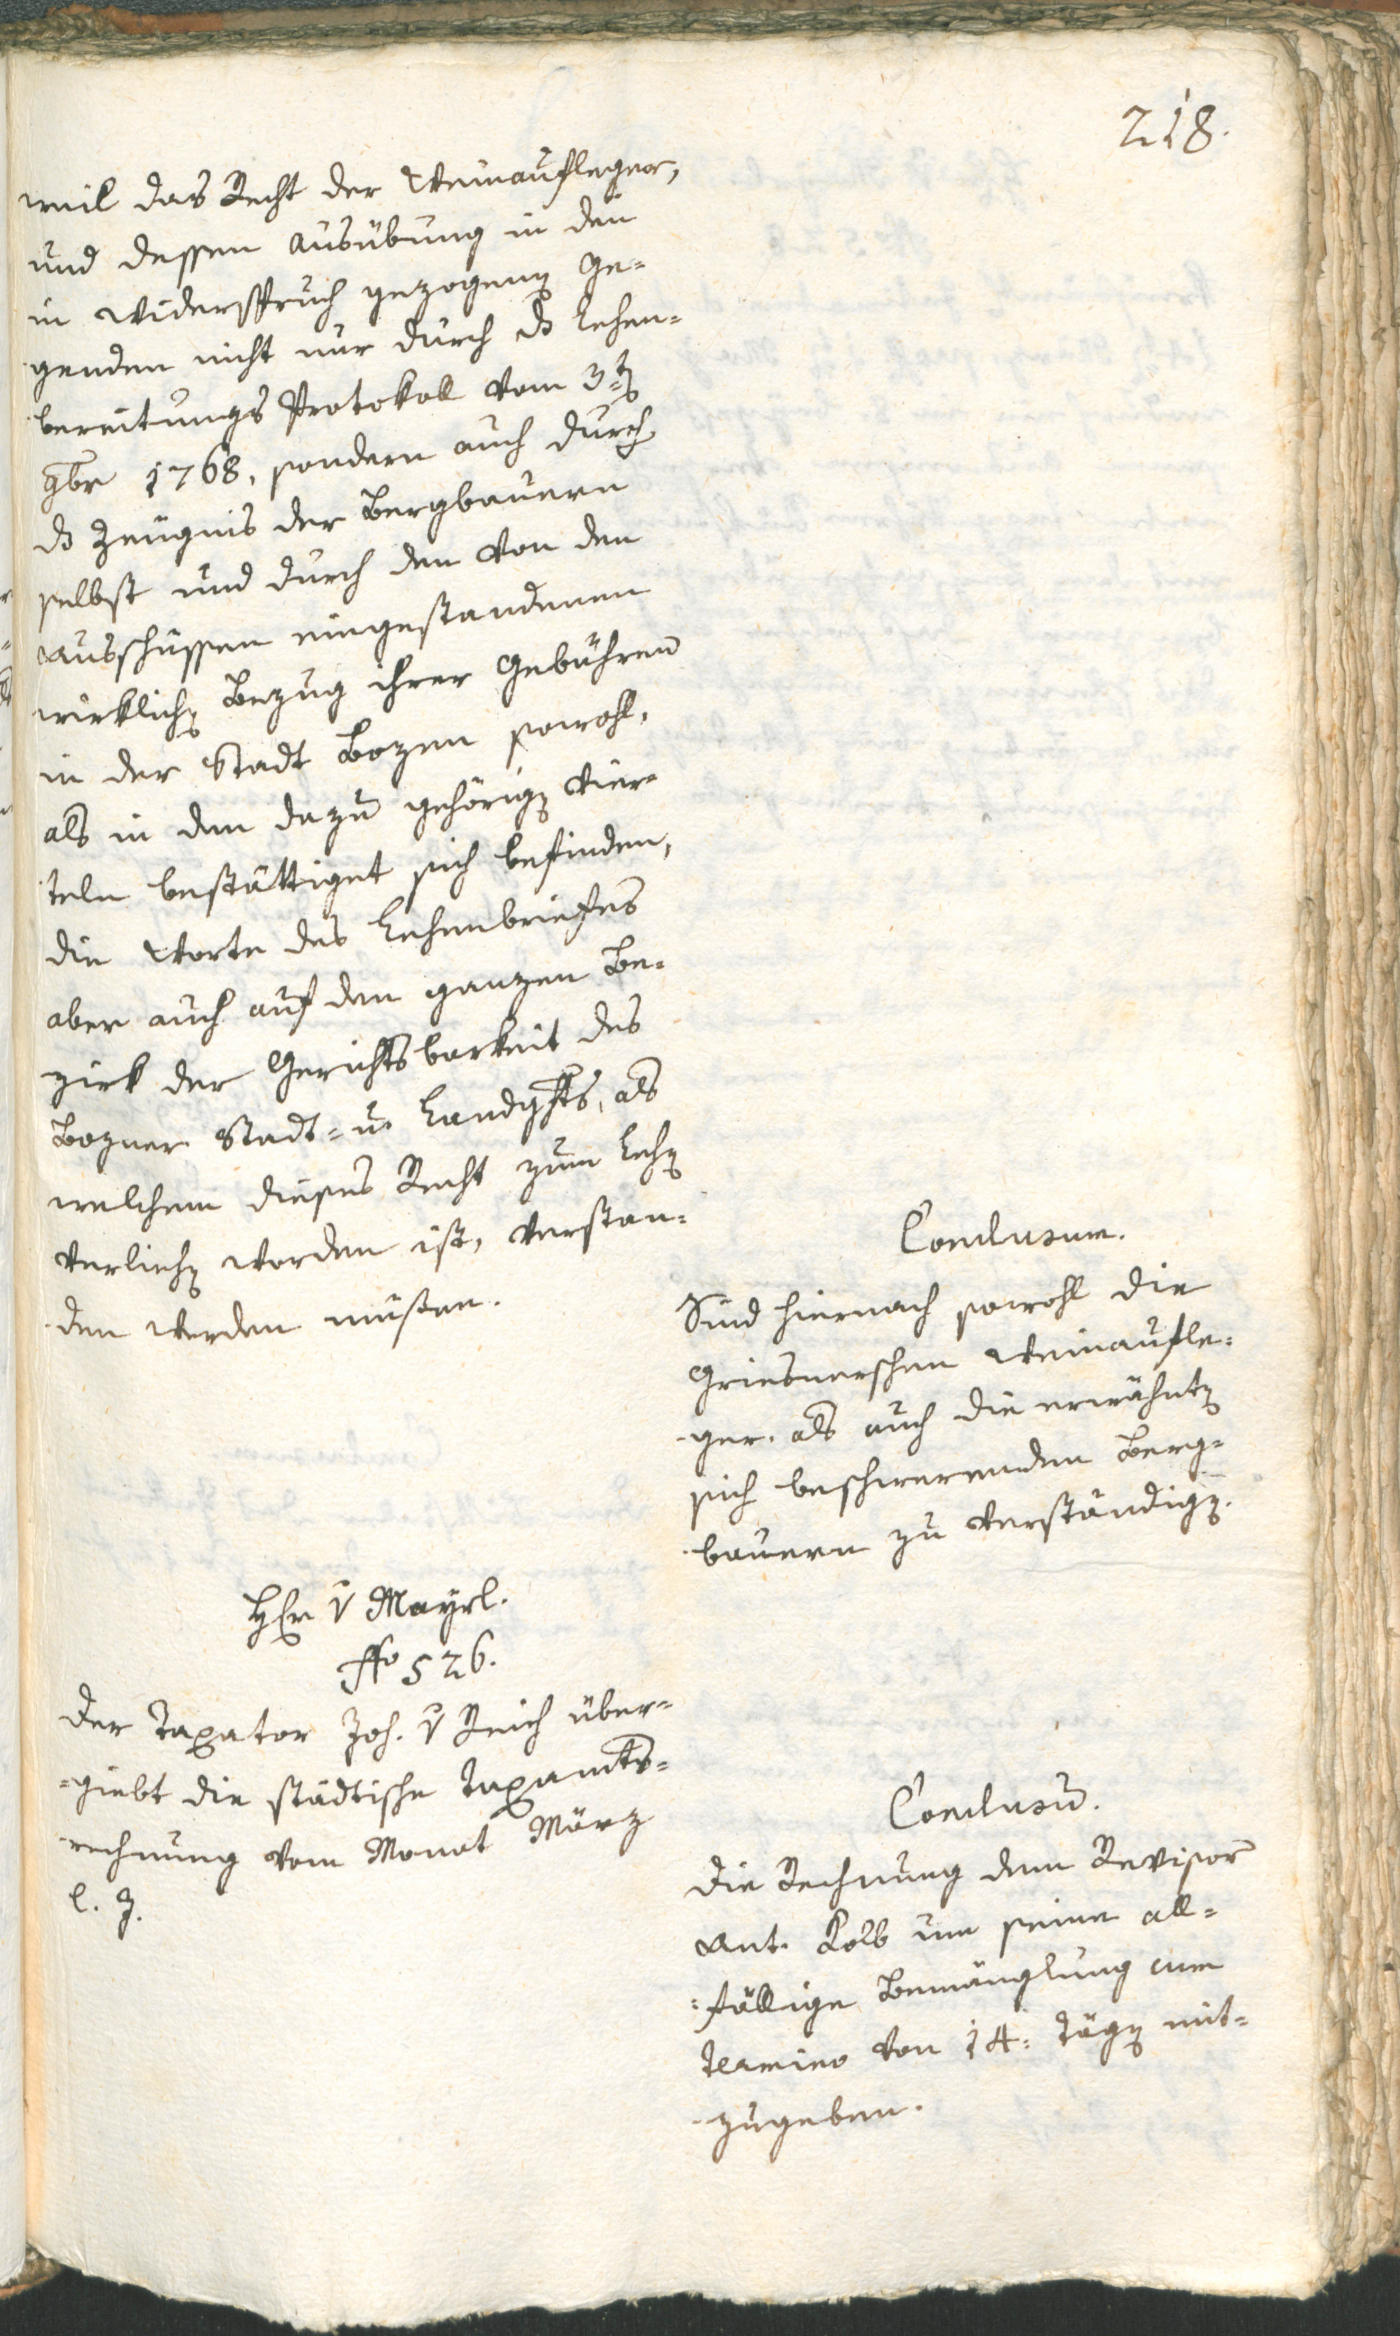 218.
weil das Recht der Weinaufleger,
und dessen Ausübung in den
in Widerspruch gezogenen Ge-
genden nicht nur durch das Lehen-
bereitungs Protokoll vom 3ten
9br 1768, sondern auch durch
das Zeugnis der Bergbauern
selbst und durch den von den
Ausschüssen eingestandenen
wirklichen Bezug ihrer Gebühren
in der Stadt Bozen sowohl,
als in den dazu gehörigen Vier-
teln bestättiget sich befinden,
die Worte des Lehenbriefes
aber auch auf den ganzen Be-
zirk der Gerichtsbarkeit des
Bozner Stadt- u. Landghts, als
welchem dieses Recht zum Lehen
verliehen worden ist, verstan-
den werden müssen.
Conclusum.
Sind hiernach sowohl die
Griesnerschen Weinaufle-
ger. als auch die erwähnten
sich beschwerenden Berg-
bauern zu verständigen.
Hr v Mayrl.
No 526.
Der Taxator Joh. v Reich über-
-giebt die städtische Taxamts-
rechnung vom Monat März
l. J.
Conclusum.
Die Rechnung dem Revisor
Ant. Kolb um seine all-
-fällige Bemänglung cum
Termino von 14. Tägen mit-
zugeben.